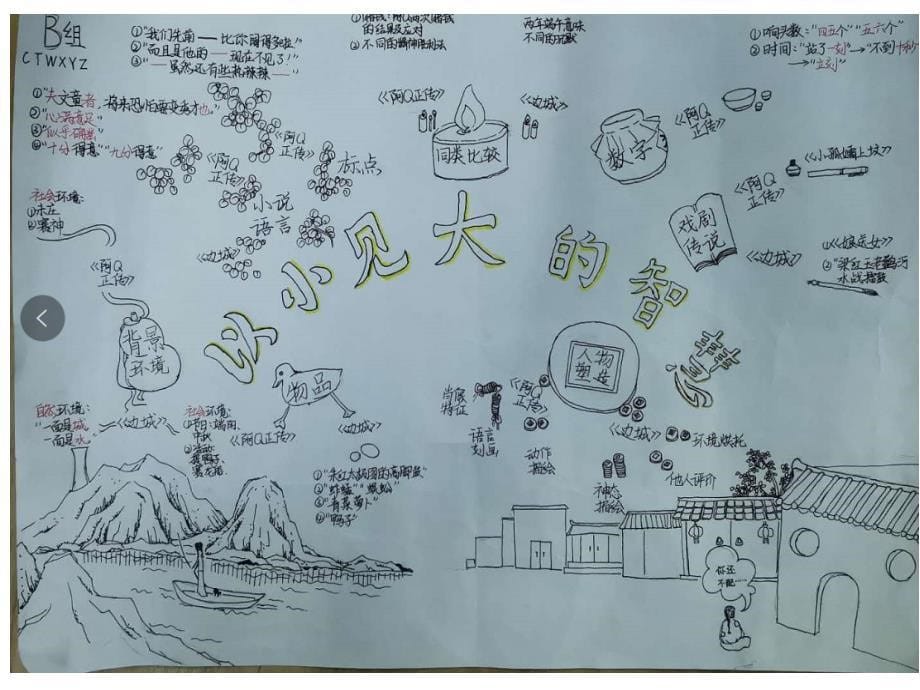 B组
CTWXYZ
①"我们先前——比你阔得多啦！"
②"而且是他的——现在不见了！"
③"——虽然还有些热辣辣——"
的结果及应对
②不同的精神胜利法
两年端午意味
不同的元歌
①响头数："四五个""五六个"
②时间："站了一刻"→"不到十秒"
→"立刻"
①"夫文童者，将来恐怕要变秀才也。"
②"心满意足"
③"似乎确凿"
④"十分得意""九分得意"
《阿Q
正传》
标点
《阿Q
正传》
小说
语言
《边城》
《阿Q正传》
《边城》
同类比较
数字
《阿Q
正传》
戏剧
传说
《阿Q
正传》
《小孤孀上坟》
《边城》
①《娘送女》
②"梁红玉老鹳河
水战擂鼓
社会环境:
①未庄
②赛神
《阿Q
正传》
背景
环境
以小见大的智慧
物品
《阿Q正传》
《边城》
人物
塑造
《阿Q
正传》
《边城》
肖像
特征
语言
刻画
动作
描绘
神态
描绘
环境烘托
他人评价
自然环境:
"一面是城
一面是水"
《边城》
社会环境:
①节日:端南、
中秋
②活动:
捉鸭子
赛龙船
①"朱红太极图的高脚盏"
②"蚱蜢""蜈蚣"
③"青菜萝卜"
④"鸭子"
你还
不配……